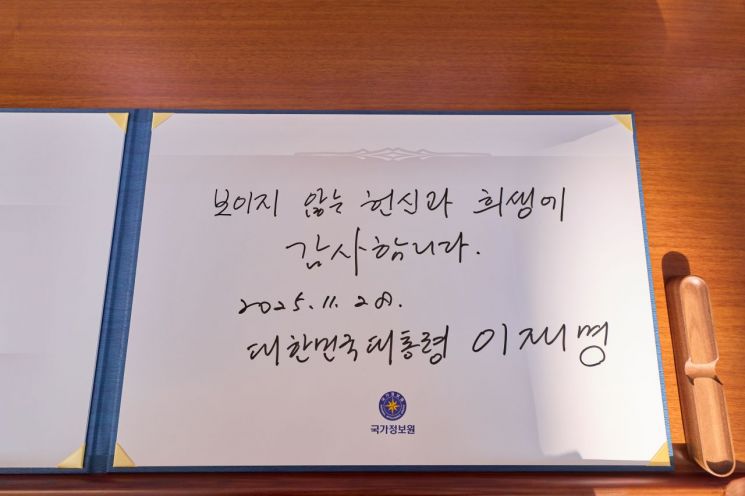 보이지 않는 헌신과 희생에
감사합니다.
2025. 11. 28.
대한민국 대통령 이재명
국가정보원